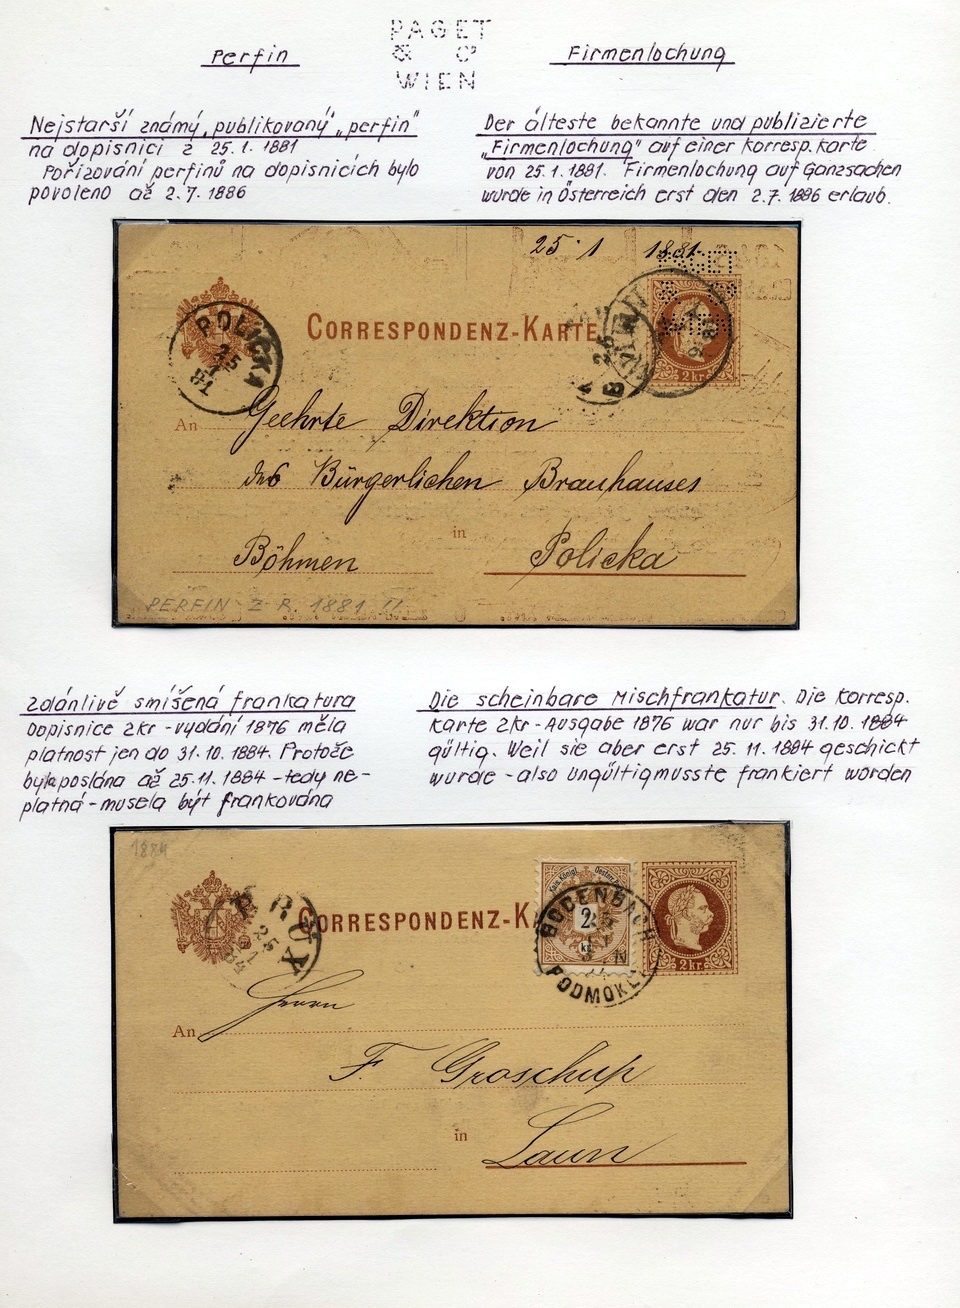 Perfin
PAGET
& Cº
WIEN
Firmenlochung
Nejstarší známý „publikovaný“ „perfin“
na dopisnici z 25.1. 1881
Pořizování perfinů na dopisnicích bylo
povoleno až 2.7. 1886
Der älteste bekannte und publizierte
„Firmenlochung“ auf einer Korresp. Karte
von 25.1. 1881. Firmenlochung auf Ganzsachen
wurde in Österreich erst den 2.7. 1886 erlaub.
25. 1 1881.
POLIČKA
25
1
81
CORRESPONDENZ-KARTE
2 kr.
An Geehrte Direktion
des Bürgerlichen Brauhauses
in
Böhmen Policka
PERFIN Z R. 1881 !!
Zdánlivě smíšená frankatura
Dopisnice 2kr - vydání 1876 měla
platnost jen do 31.10. 1884. Protože
byla poslána až 25.11. 1884 - tedy ne-
platná - musela být frankována
Die scheinbare Mischfrankatur. Die Korresp.
Karte 2kr - Ausgabe 1876 war nur bis 31.10. 1884
gültig. Weil sie aber erst 25.11. 1884 geschickt
wurde - also ungültig musste frankiert worden
1884
BRÜX
25
11
84
CORRESPONDENZ-K
2
kr.
BODENBACH
PODMOKL
2 kr.
An Herrn
F. Groschup
in
Laun